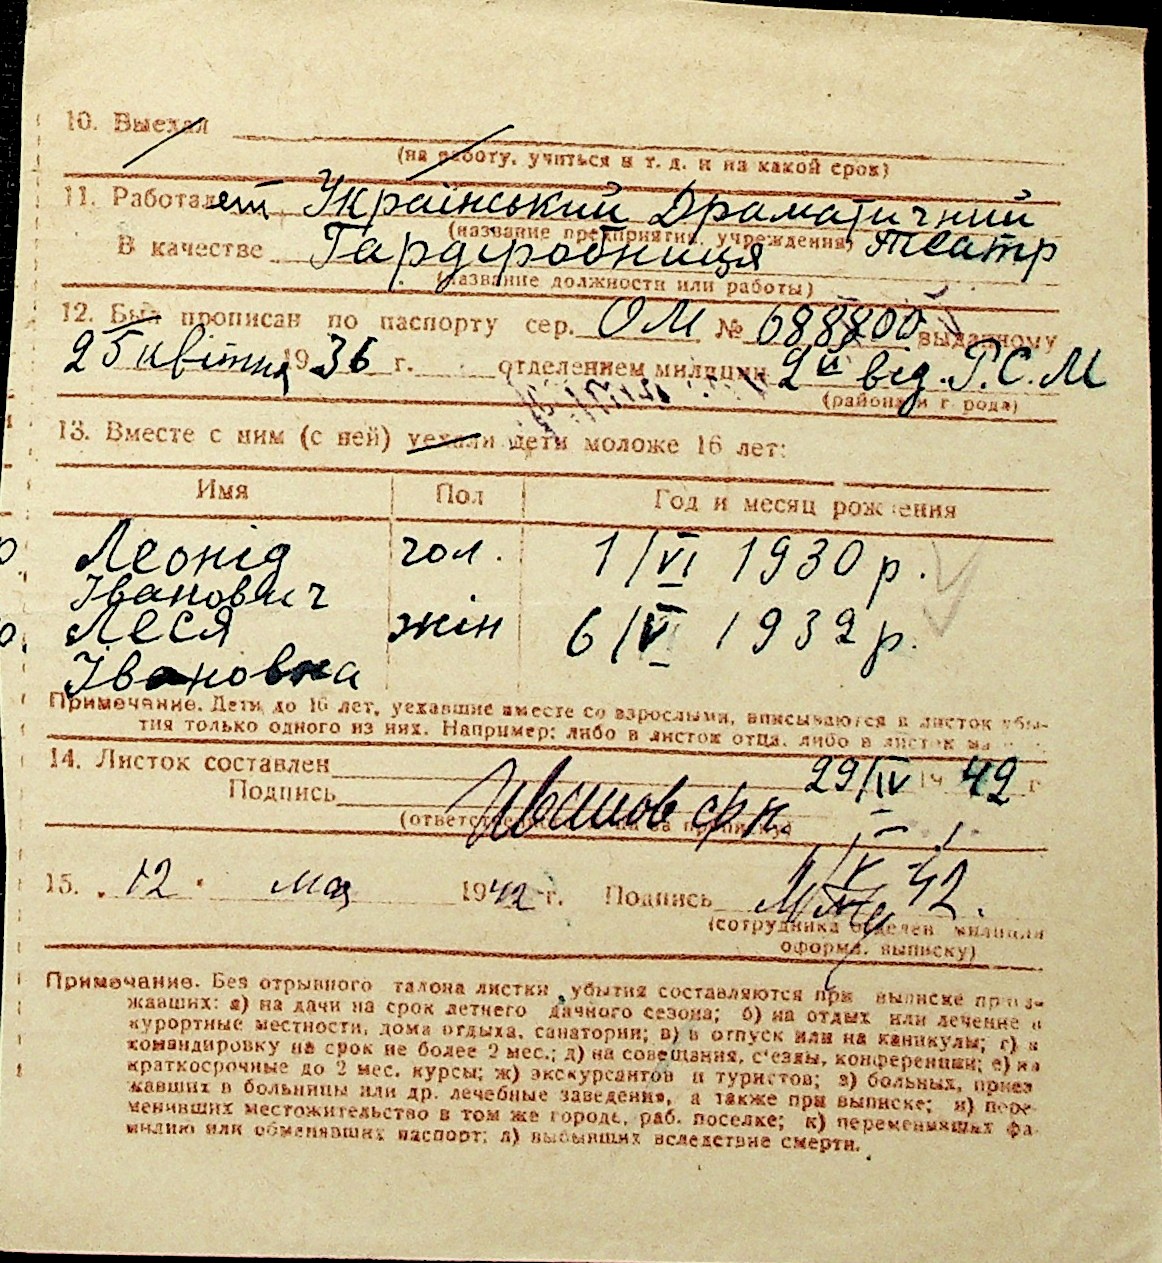 10. Выехал
(на работу, учиться и т. д. и на какой срок)
11. Работает Український Драматичний
(название предприятия, учреждения) театр
В качестве Гардеробниця
(название должности или работы)
12. Был прописан по паспорту сер. ОМ № 688800 выданному
25 квітня 1936 г. отделением милиции 2є від. Р.С.М
(района и города)
13. Вместе с ним (с ней) уехали дети моложе 16 лет:
Имя Пол Год и месяц рождения
Леонід чол. 1/VI 1930 р.
Іванович
Леся жін 6/V 1932 р.
Івановна
Примечание. Дети до 16 лет, уехавшие вместе со взрослыми, вписываются в листок убы-
тия только одного из них. Например: либо в листок отца, либо в листок
14. Листок составлен 29/IV 1942 г
Подпись
(ответственного за прописку)
15. 12 мая 1942 г. Подпись 42.
(сотрудника отделен. милиции
оформл. выписку)
Примечание. Без отрывного талона листки убытия составляются при выписке приез-
жавших: а) на дачи на срок летнего дачного сезона; б) на отдых или лечение в
курортные местности, дома отдыха, санатории; в) в отпуск или на каникулы; г) в
командировку на срок не более 2 мес.; д) на совещания, с'езды, конференции; е) на
краткосрочные до 2 мес. курсы; ж) экскурсантов и туристов; з) больных, приез
жавших в больницы или др. лечебные заведения, а также при выписке; и) пере-
менивших местожительство в том же городе, раб. поселке; к) переменивших фа-
милию или обменявших паспорт; л) выбывших вследствие смерти.